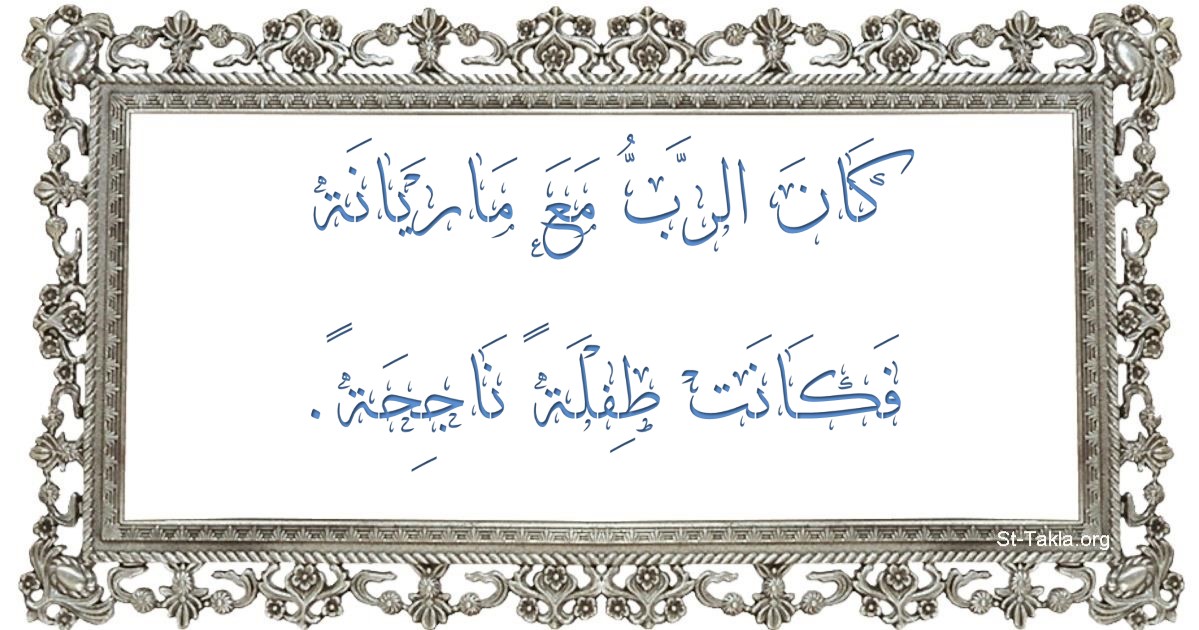 كَانَ الرَّبُّ مَعَ مَاريَانَة
فَكَانَت طِفْلَةً نَاجِحَةً.
St-Takla.org